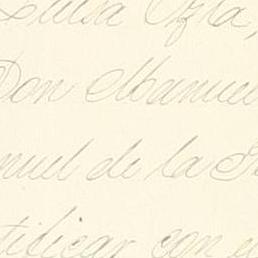 Luisa Ofra,
Don Manuel
nuel de la S
tificar con e